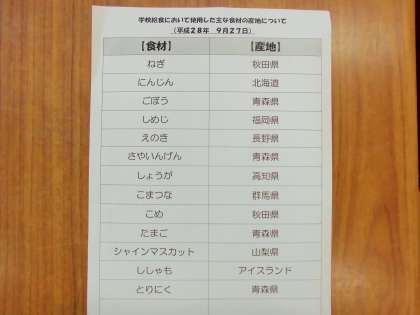 学校給食において使用した主な食材の産地について
（平成２８年　９月２７日）
【食材】 【産地】
ねぎ 秋田県
にんじん 北海道
ごぼう 青森県
しめじ 福岡県
えのき 長野県
さやいんげん 青森県
しょうが 高知県
こまつな 群馬県
こめ 秋田県
たまご 青森県
シャインマスカット 山梨県
ししゃも アイスランド
とりにく 青森県